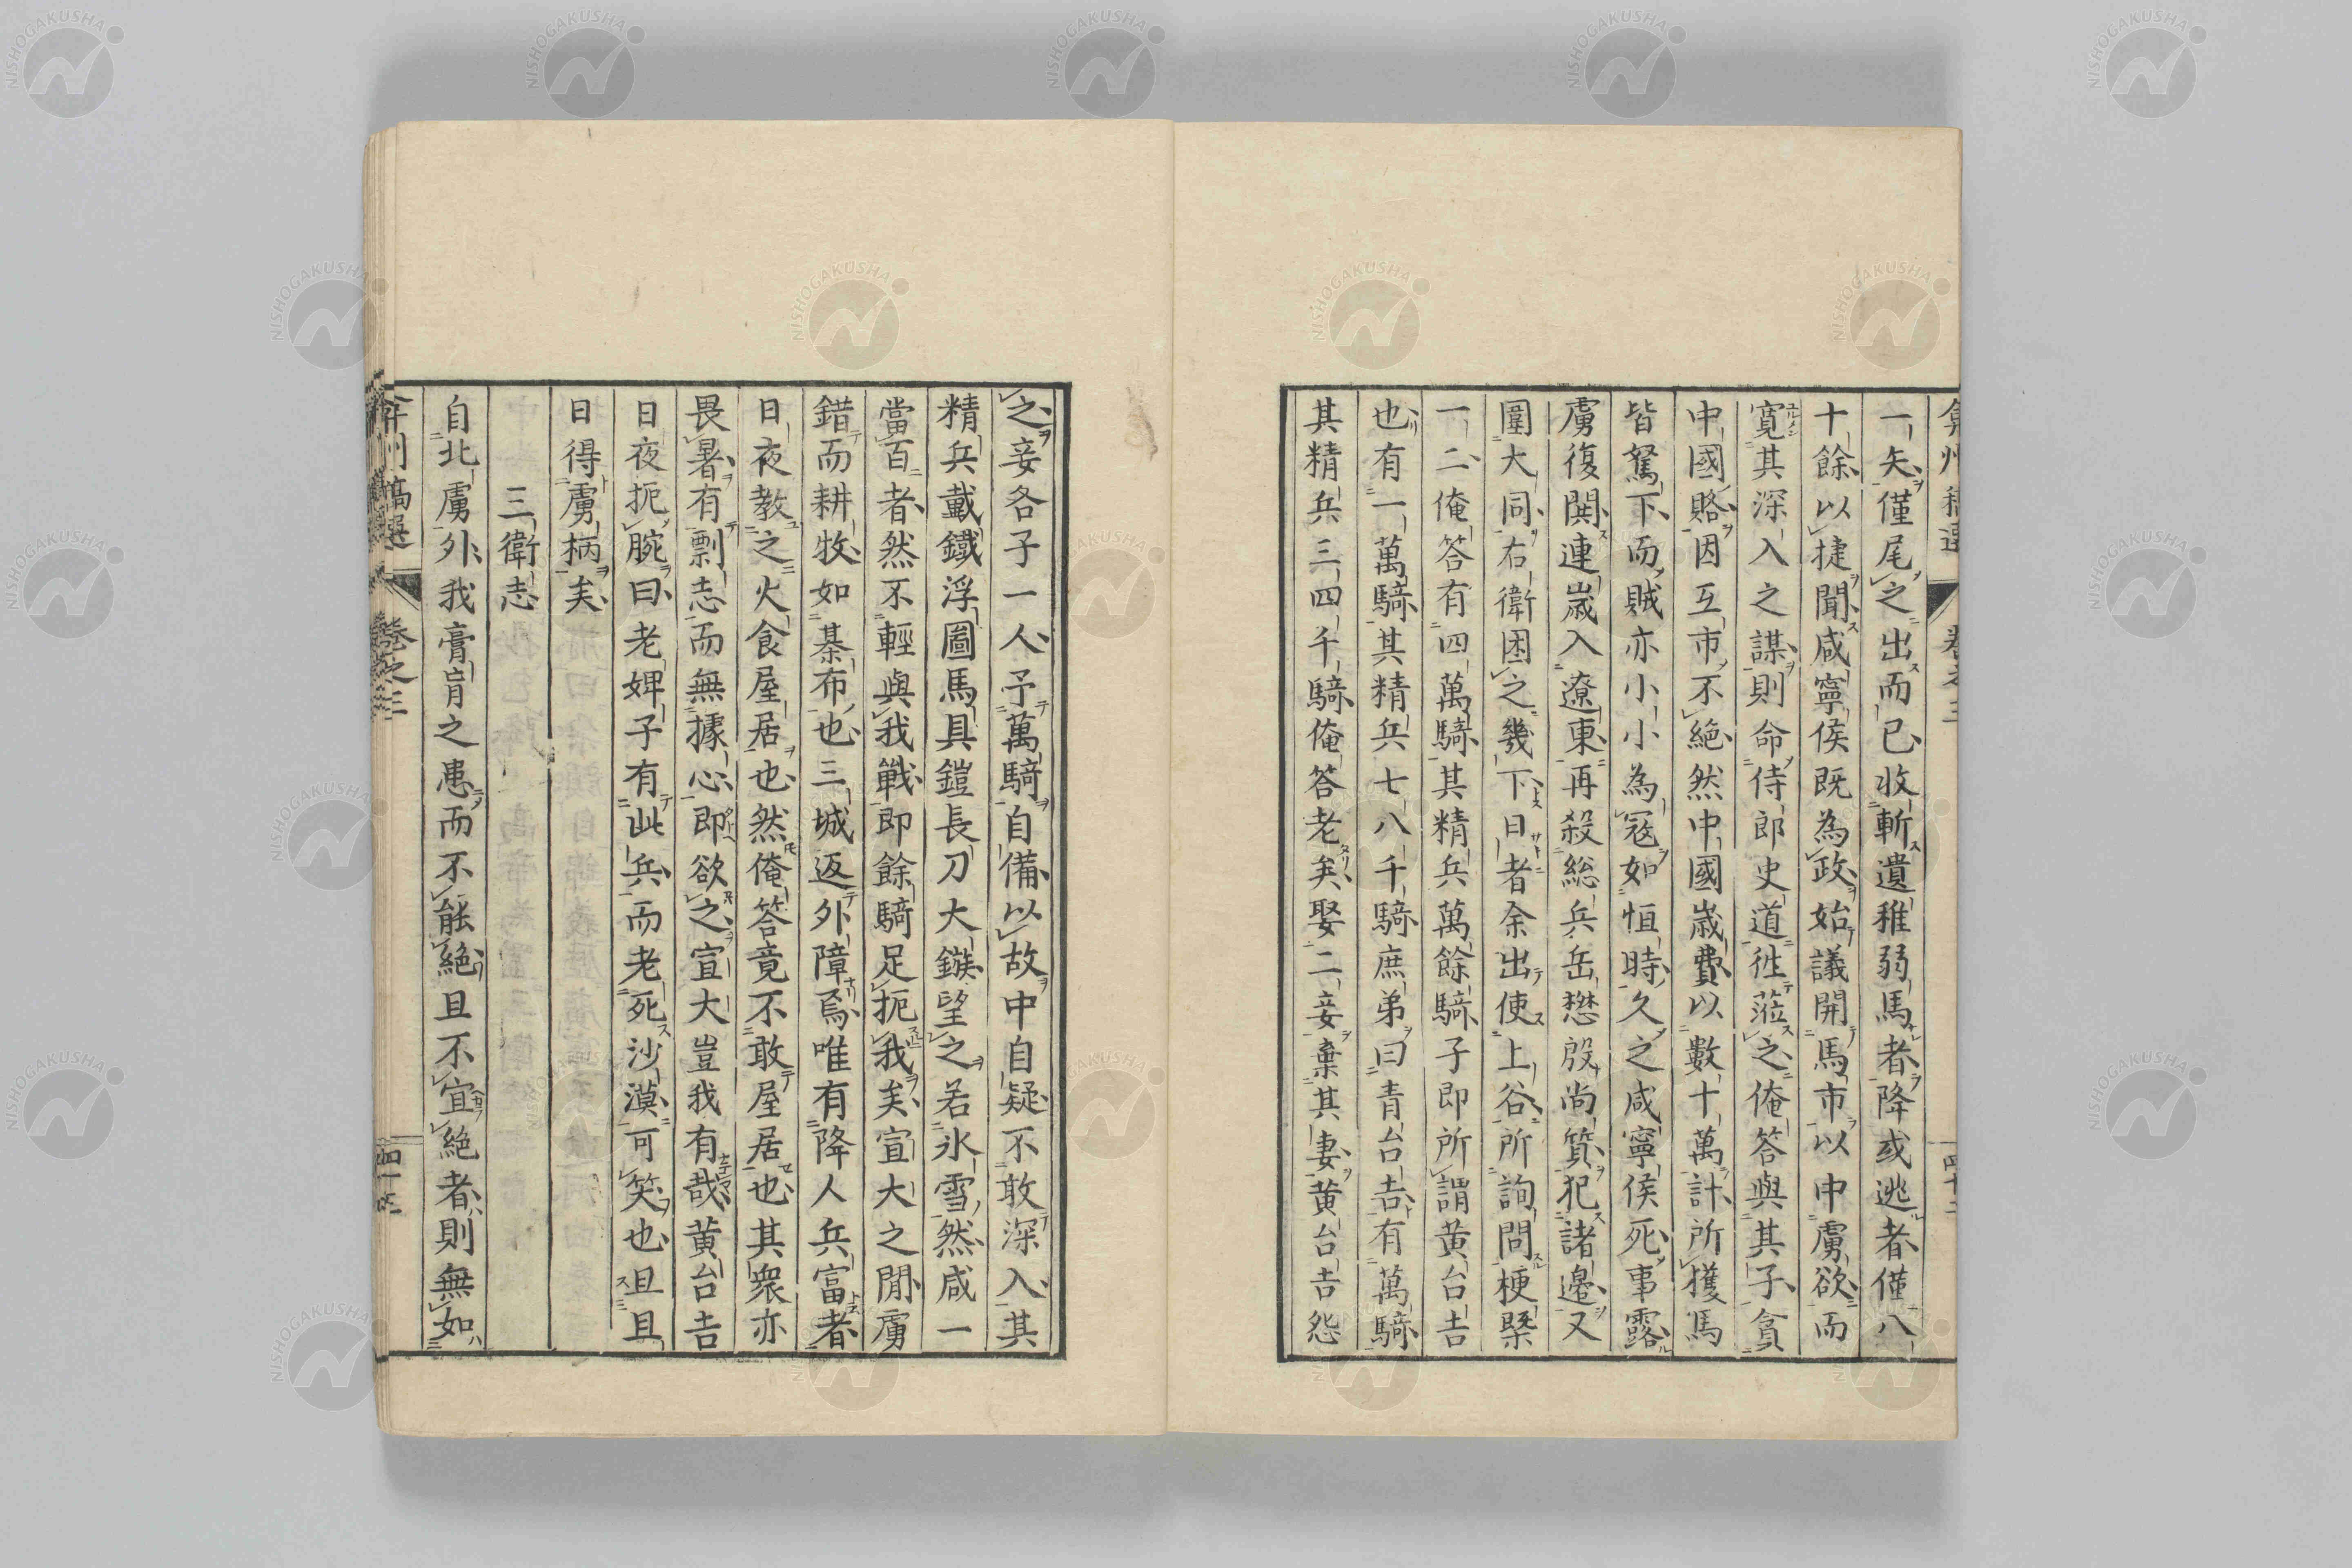 弇州稿選 卷之三 四十二
一矢僅尾之出而已收斬遺稚弱馬者降或逃者僅八
十餘以捷聞咸寧侯既為政始議開馬市以中虜欲而
寛其深入之謀則命侍郎史道徃蒞之俺答與其子貪
中國賂因互市不絕然中國歲費以數十萬計所獲馬
皆駑下而賊亦小小為冦如恒時久之咸寧侯死事露
虜復閧連歲入遼東再殺総兵岳懋殷尚質犯諸邉又
圍大同右衛困之幾下日者余出使上谷所詢問梗槩
一二俺答有四萬騎其精兵萬餘騎子即所謂黄台吉
也有一萬騎其精兵七八千騎庶弟曰青台吉有一萬騎
其精兵三四千騎俺答老矣娶二妾棄其妻黄台吉怨
之妾各子一人予萬騎自備以故中自疑不敢深入其
精兵戴鐡浮圖馬具鎧長刀大鏃望之若氷雪然咸一
當百者然不輕與我戰即餘騎足扼我矣宣大之閒虜
錯而耕牧如棊布也三城返外障焉唯有降人兵富者
日夜教之火食屋居也然俺答竟不敢屋居也其衆亦
畏暑有剽志而無據心即欲之宣大豈我有哉黄台吉
日夜扼腕曰老婢子有此兵而老死沙漠可笑也且且
日得虜柄矣
三衛志
自北虜外我膏肓之患而不能絕且不宜絕者則無如
弇州稿選 卷之三